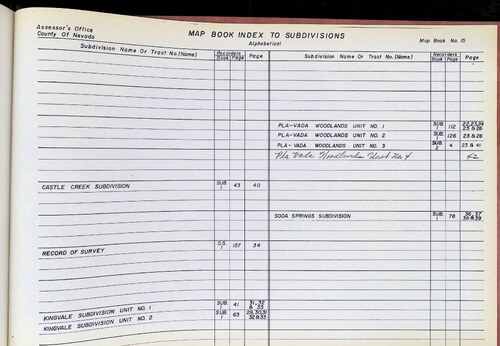 Assessor's Office
County Of Nevada
MAP BOOK INDEX TO SUBDIVISIONS
Alphabetical
Map Book No. 15
Subdivision Name Or Tract No.(Name)
Recorders
Book Page
Page
Subdivision Name Or Tract No.(Name)
Recorders
Book Page
Page
PLA-VADA WOODLANDS UNIT NO. 1 SUB. 1 112 22,23,24 25 & 26
PLA-VADA WOODLANDS UNIT NO. 2 SUB. 1 126 23 & 26
PLA-VADA WOODLANDS UNIT NO. 3 SUB. 2 4 23 & 41
Pla Vada Woodlands Unit No. 4 42
CASTLE CREEK SUBDIVISION SUB. 1 43 40
SODA SPRINGS SUBDIVISION SUB. 1 78 36, 37 38 & 39
RECORD OF SURVEY O.S. 1 157 34
KINGVALE SUBDIVISION UNIT NO. 1 SUB. 1 41 31, 32 & 33
KINGVALE SUBDIVISION UNIT NO. 2 SUB. 1 63 29,30,31 32 & 33